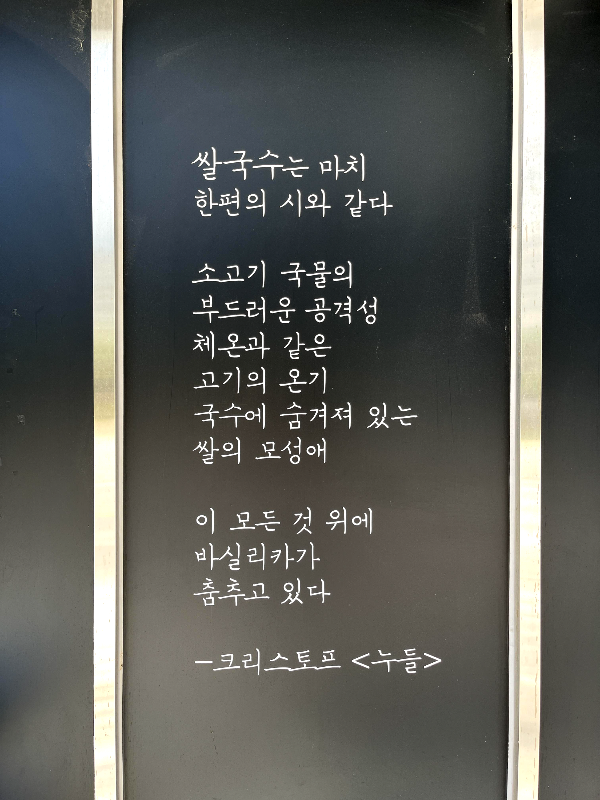 쌀국수는 마치
한편의 시와 같다
소고기 국물의
부드러운 공격성
체온과 같은
고기의 온기
국수에 숨겨져 있는
쌀의 모성애
이 모든 것 위에
바실리카가
춤추고 있다
-크리스토프 <누들>